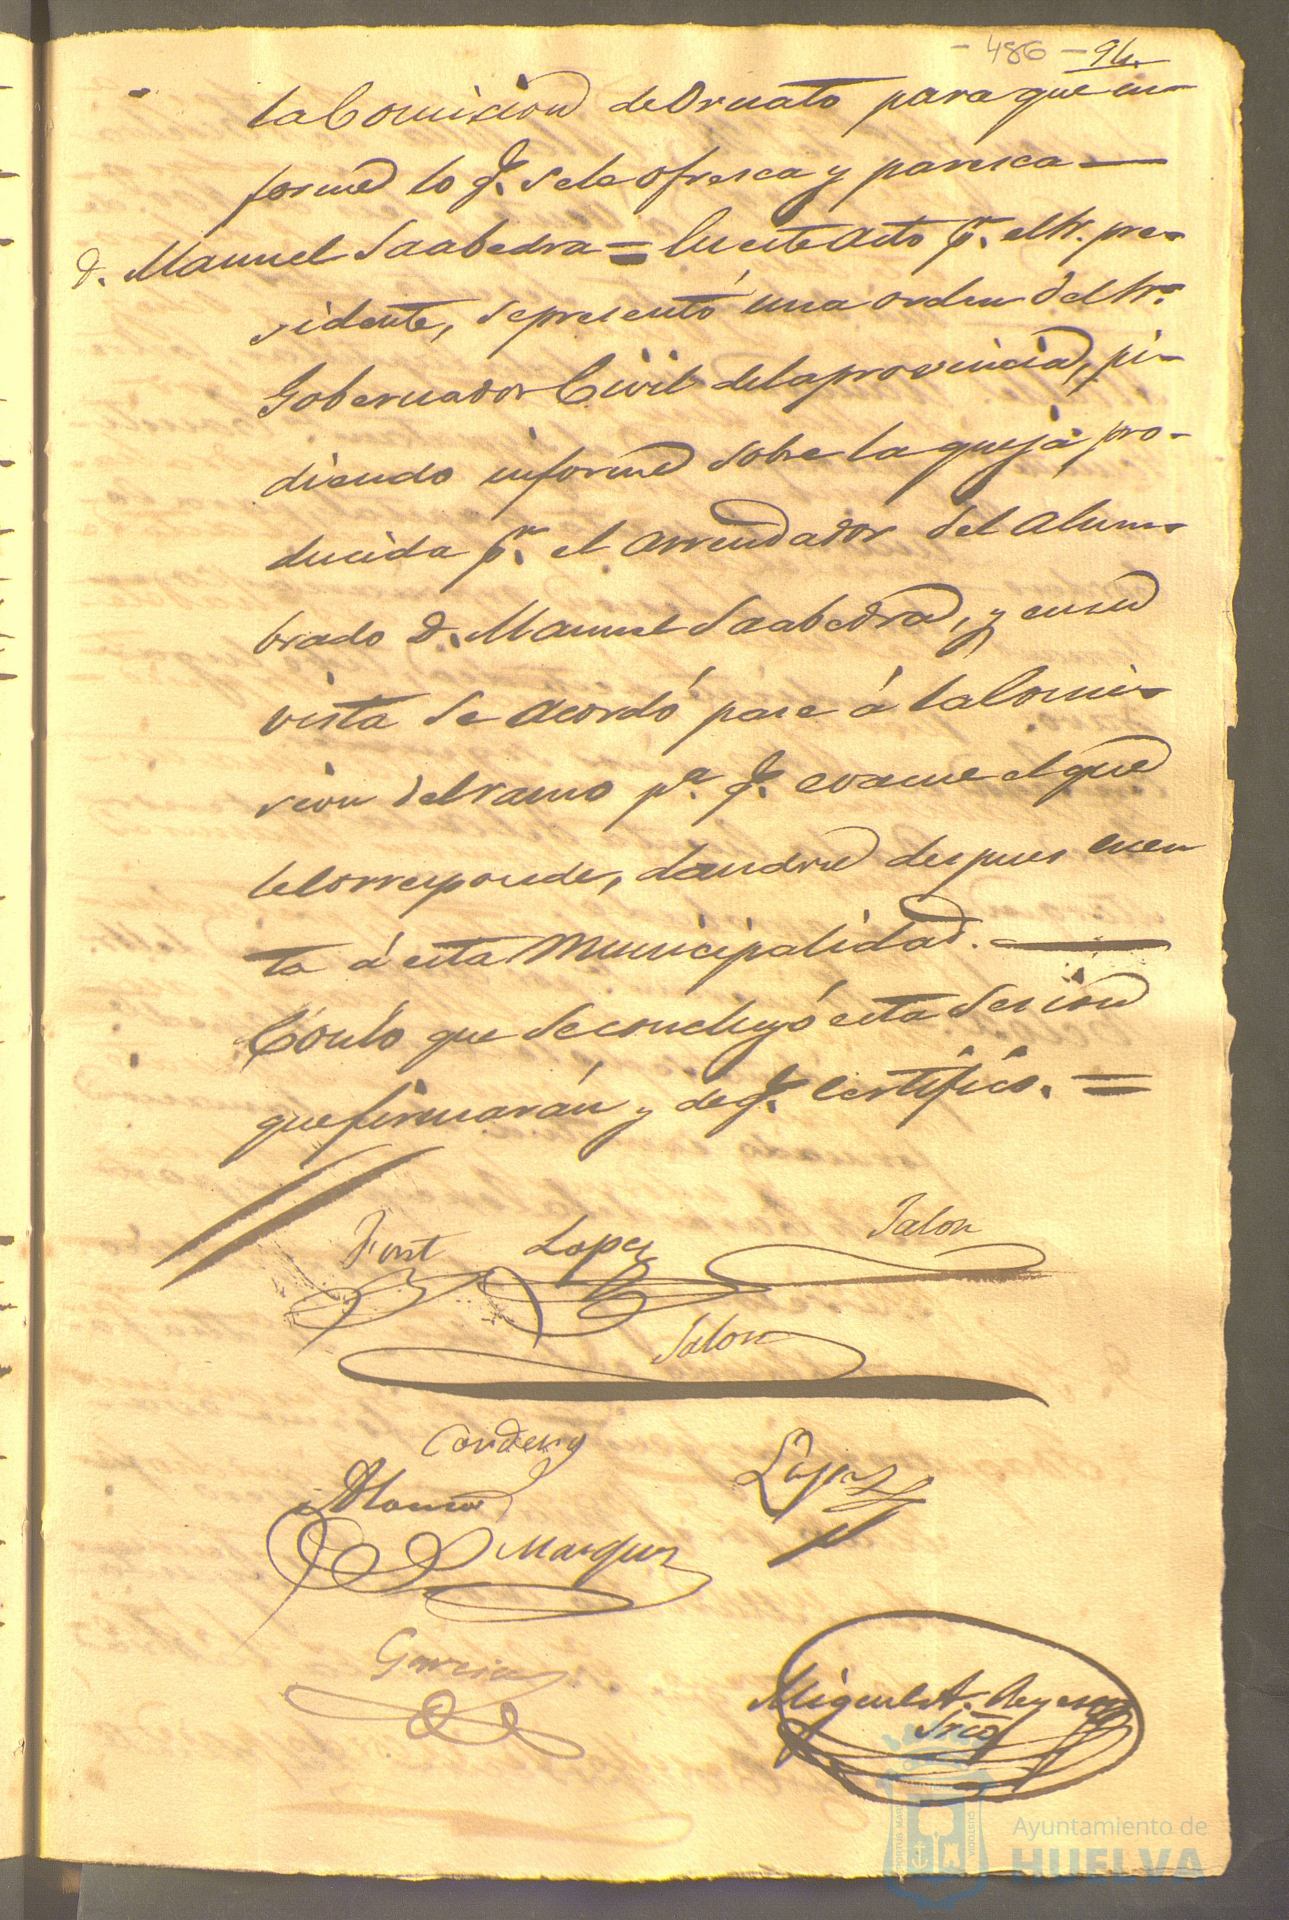 - 486 - 94.
la Comision de Ornato para que in-
forme lo q.e se le ofresca y paresca —
D. Manuel Saabedra = En este acto p.r el Sr. pre-
sidente, se presentó una orden del Sr.
Gobernador Civil de la provincia, pi-
diendo informe sobre la queja pro-
ducida p.r el arrendador del alum-
brado D. Manuel Saabedra, y en su
vista se acordó pase á la Comi-
sion del ramo p.a q.e evacue el que
le corresponde, dandose despues cuen
ta á esta Municipalidad. —
Con lo que se concluyó esta sesion
que firmarán y de q.e certifico. =
Font Lopez Jalon
Jalon
Cordero
Alonso Lopez
Marquez
Garcia
Miguel A. Reyes
Srio
Ayuntamiento de
HUELVA